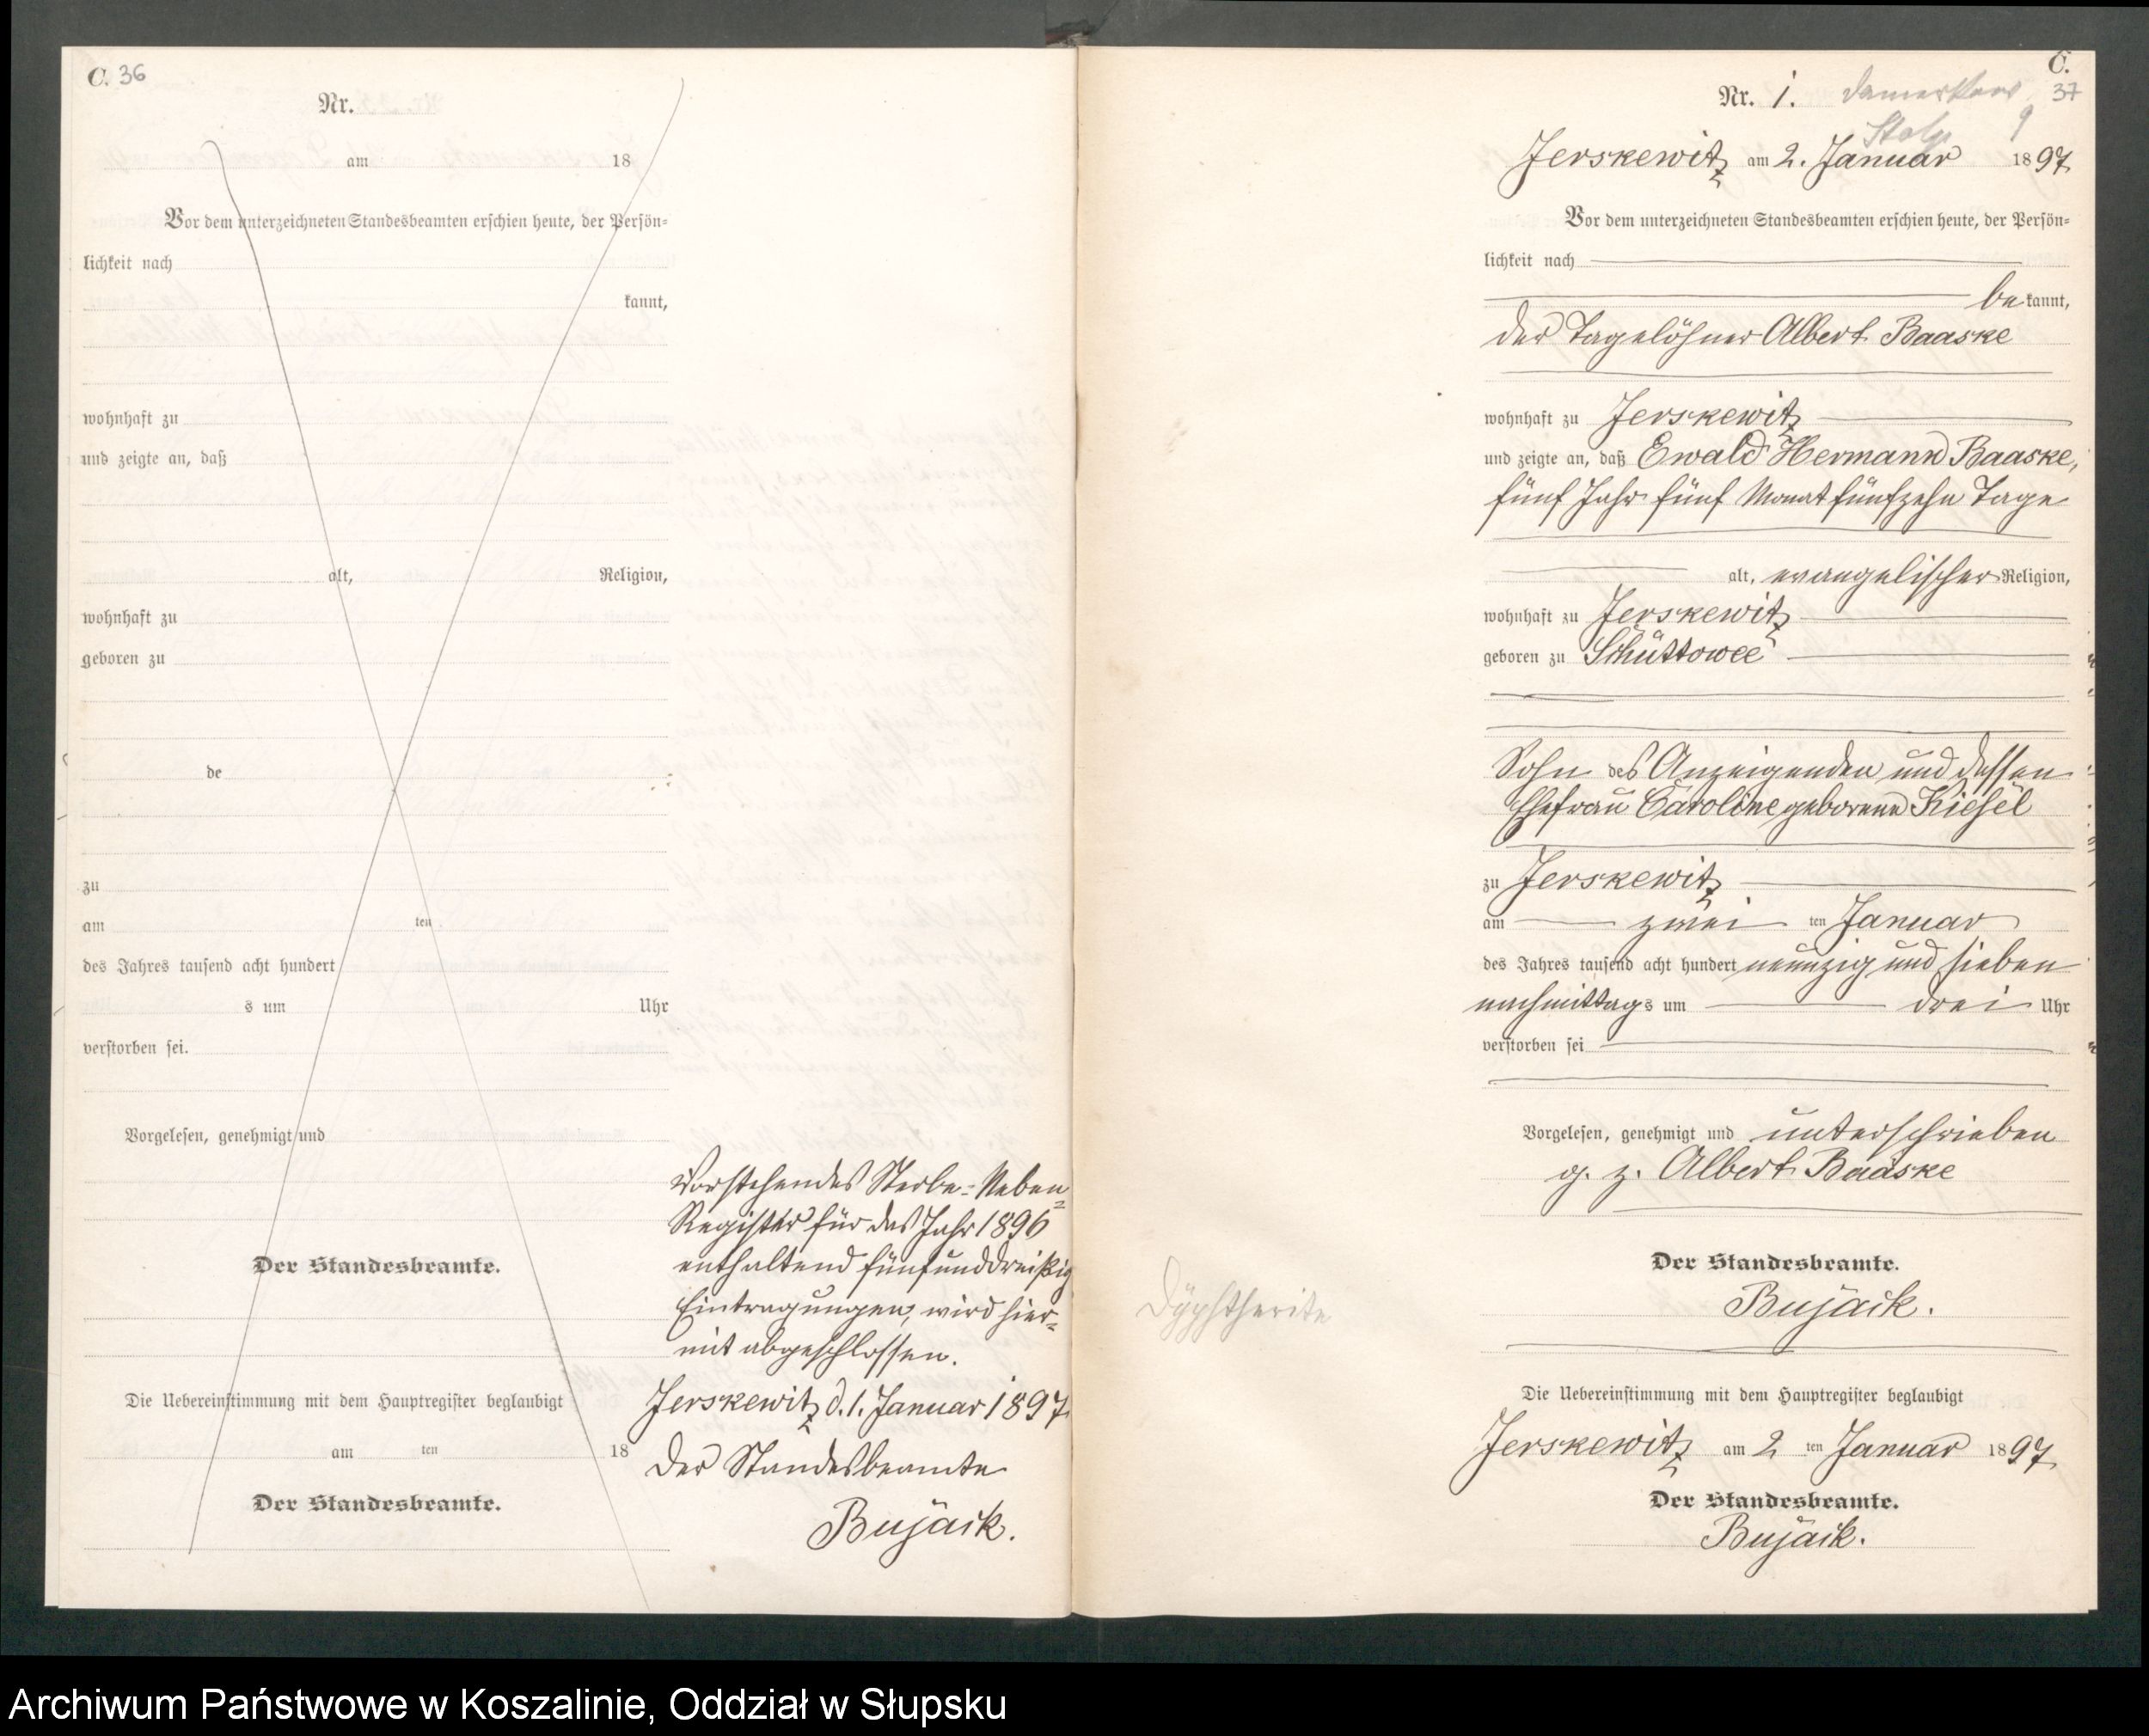 C. 36
Nr.
am 18
Vor dem unterzeichneten Standesbeamten erschien heute, der Persön-
lichkeit nach
kannt,
wohnhaft zu
und zeigte an, daß
alt, Religion,
wohnhaft zu
geboren zu
de
zu
am ten
des Jahres tausend acht hundert
s um Uhr
verstorben sei.
Vorgelesen, genehmigt und
Der Standesbeamte.
Die Uebereinstimmung mit dem Hauptregister beglaubigt
am ten 18
Der Standesbeamte.
Vorstehendes Sterbe-Neben-
Register für das Jahr 1896
enthaltend fünfunddreißig
Eintragungen, wird hier-
mit abgeschlossen.
Jerskewitz d. 1. Januar 1897
Der Standesbeamte
Bujack.
C.
37
Nr. 1. Damerkow 9
Stolp
Jerskewitz am 2. Januar 1897
Vor dem unterzeichneten Standesbeamten erschien heute, der Persön-
lichkeit nach
bekannt,
der Tagelöhner Albert Baaske
wohnhaft zu Jerskewitz
und zeigte an, daß Ewald Hermann Baaske,
fünf Jahr fünf Monat fünfzehn Tage
alt, evangelischer Religion,
wohnhaft zu Jerskewitz
geboren zu
Sohn des Anzeigenden und dessen
Ehefrau Caroline geborene Kiesel
zu Jerskewitz
am zwei ten Januar
des Jahres tausend acht hundert neunzig und sieben
nachmittags um drei Uhr
verstorben sei
Vorgelesen, genehmigt und unterschrieben
g. z. Albert Baaske
Der Standesbeamte.
Bujack.
Dyphtherite
Die Uebereinstimmung mit dem Hauptregister beglaubigt
Jerskewitz am 2 ten Januar 1897
Der Standesbeamte.
Bujack.
Archiwum Państwowe w Koszalinie, Oddział w Słupsku